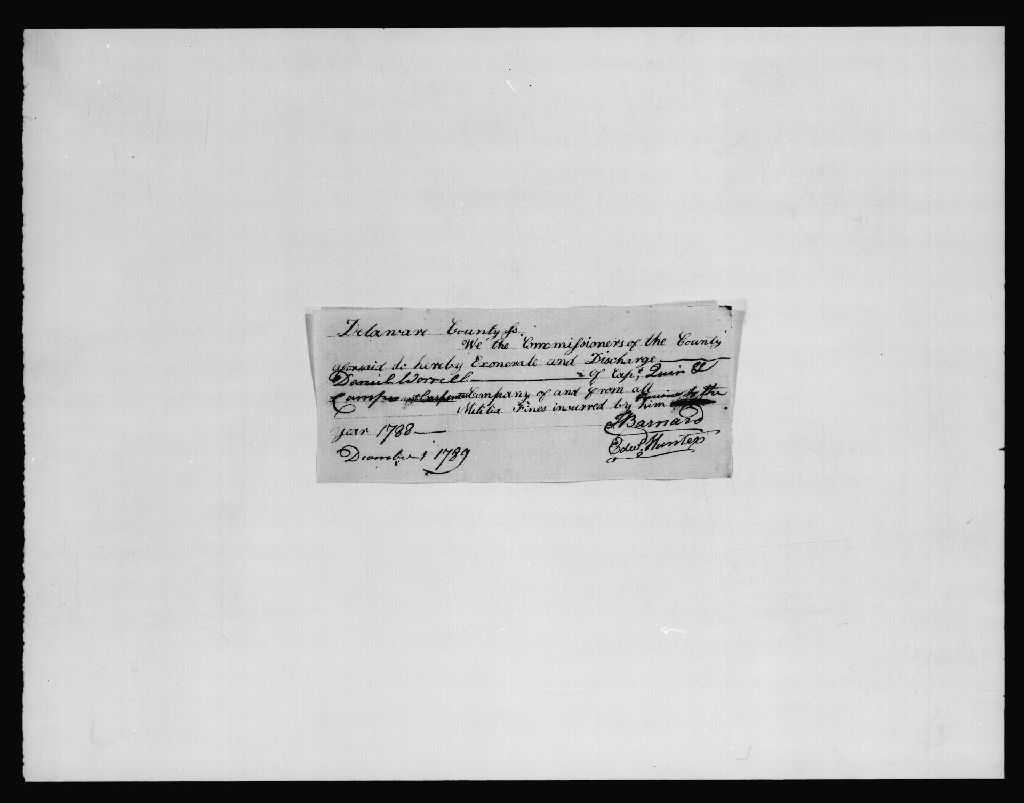 Delaware County ss.
We the Commissioners of the County
aforesaid do hereby Exonerate and Discharge
Daniel Worrell of Capt. Quin &
Camp Company of and from all
previous to the
Militia Fines incurred by him
year 1788
December 1 1789
J Barnard
Edwd. Hunter